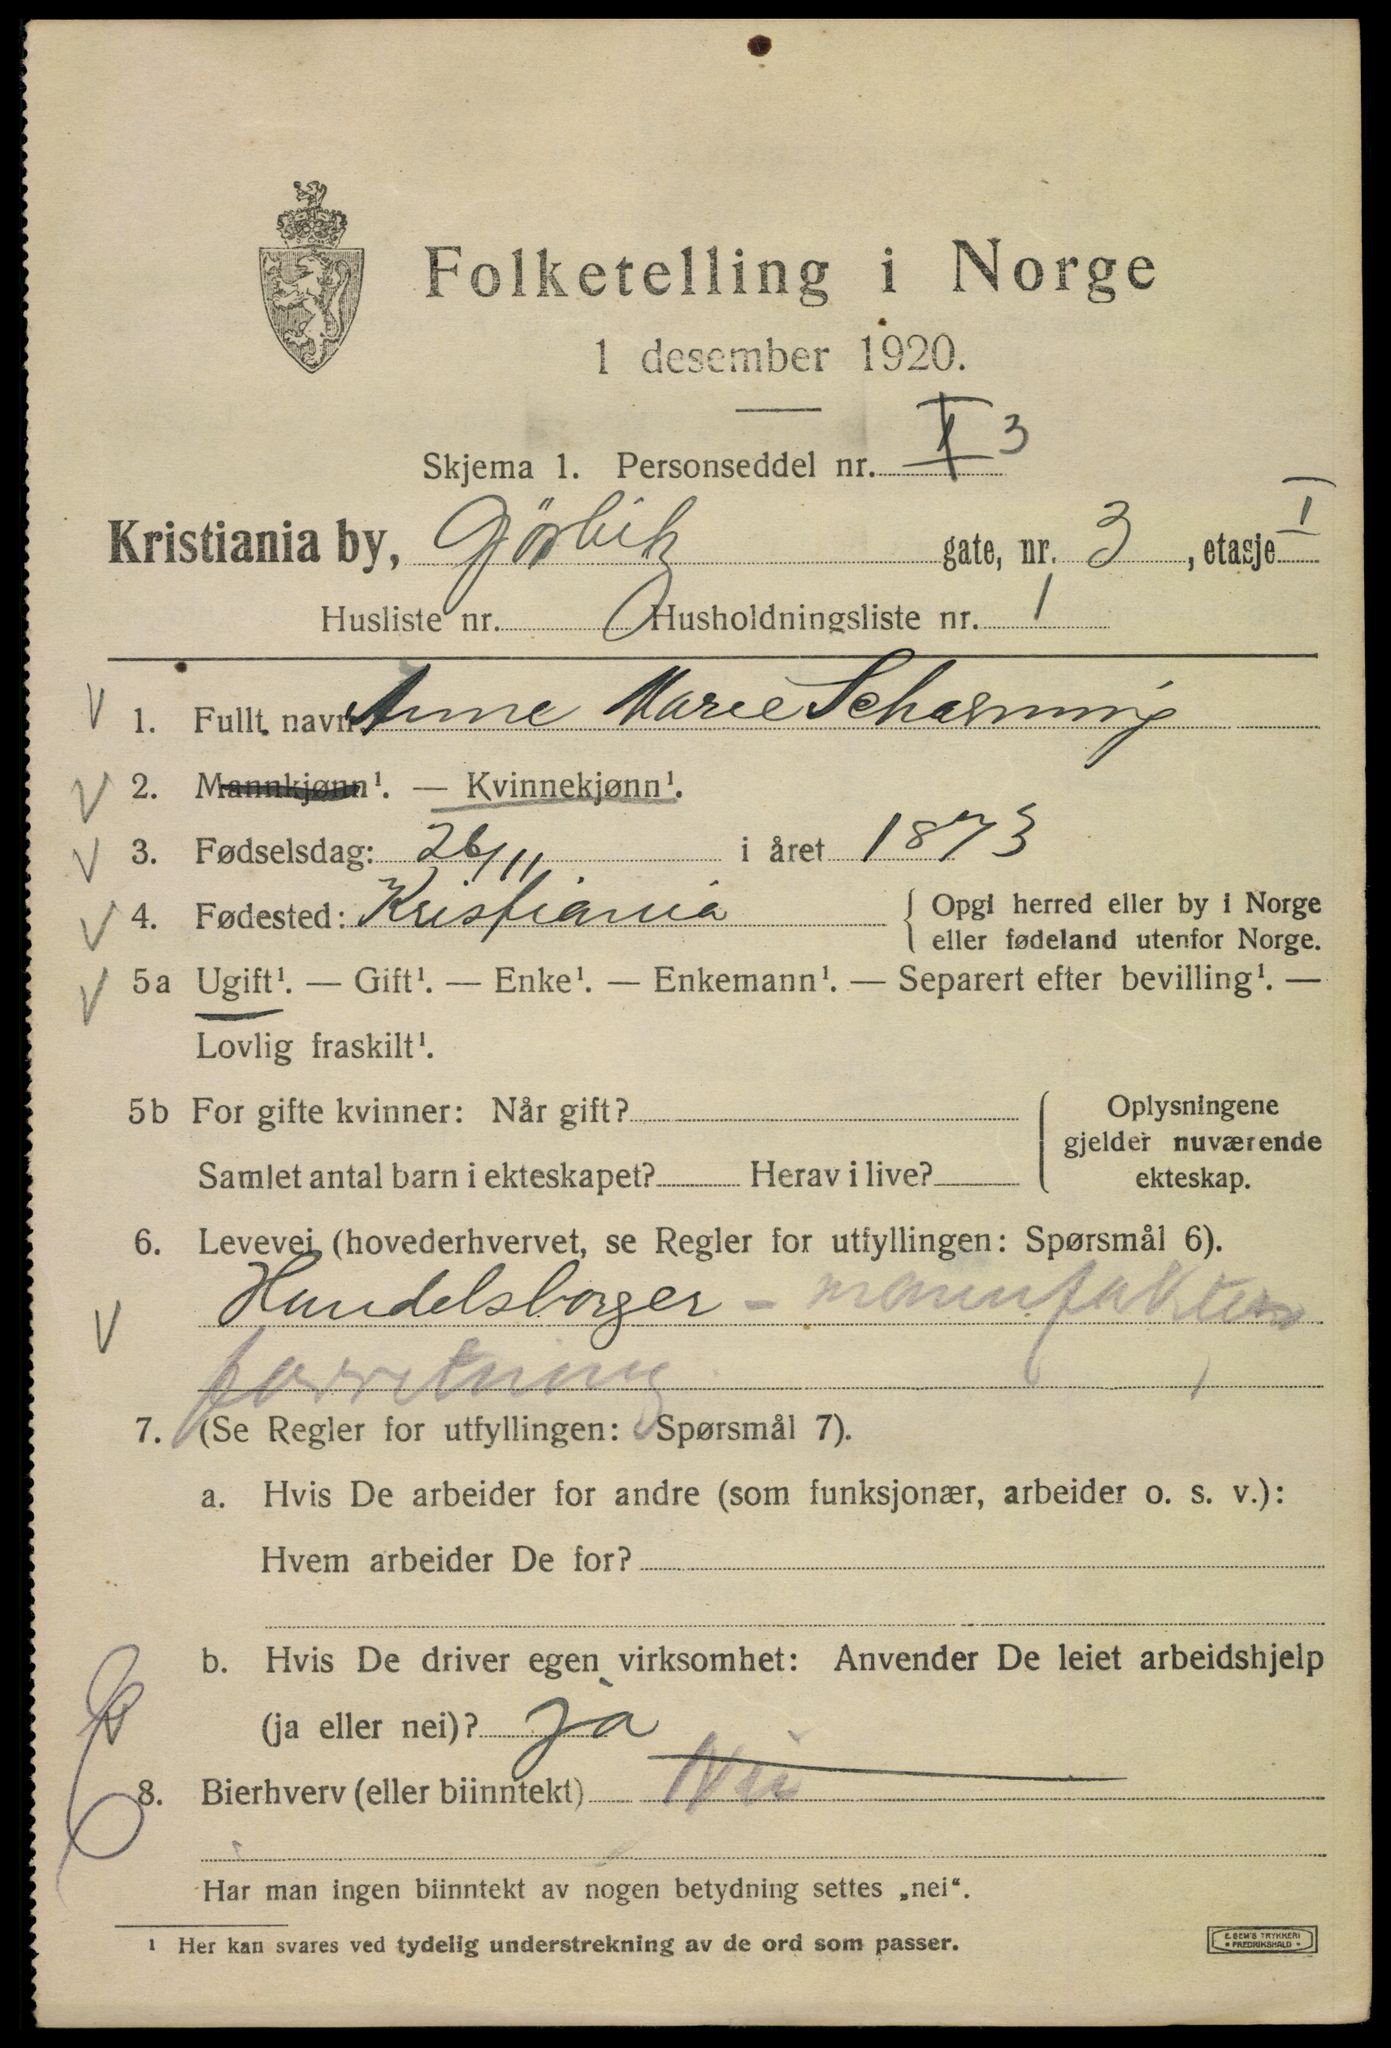 Folketelling i Norge
1 desember 1920.
Skjema 1. Personseddel nr. 3
Kristiania by, Gjövik gate, nr. 3, etasje I
Husliste nr. Husholdningsliste nr. 1
1. Fullt navn Anne Marie Scharning
2. Mannkjønn¹. — Kvinnekjønn¹.
3. Fødselsdag: 26/11. i året 1873
4. Fødested: Kristiania { Opgi herred eller by i Norge
eller fødeland utenfor Norge.
5a Ugift¹. — Gift¹. — Enke¹. — Enkemann¹. — Separert efter bevilling¹. —
Lovlig fraskilt¹.
5b For gifte kvinner: Når gift? { Oplysningene
gjelder nuværende
Samlet antal barn i ekteskapet? Herav i live? ekteskap.
6. Levevei (hovederhvervet, se Regler for utfyllingen: Spørsmål 6).
Handelsborger - manufaktur
forretning
7. (Se Regler for utfyllingen: Spørsmål 7).
a. Hvis De arbeider for andre (som funksjonær, arbeider o. s. v.):
Hvem arbeider De for?
b. Hvis De driver egen virksomhet: Anvender De leiet arbeidshjelp
(ja eller nei)? ja
8. Bierhverv (eller biinntekt) Nei
Har man ingen biinntekt av nogen betydning settes „nei“.
¹ Her kan svares ved tydelig understrekning av de ord som passer.
E. SEM'S TRYKKERI
• FREDRIKSHALD •